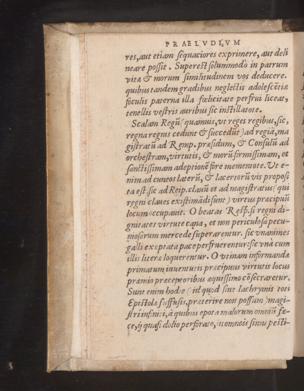 PRAELVDIVM
res, aut etiam sequaciores exprimere, aut deli
neare possit. Superest solummodò in patrum
vita & morum similitudinem vos deducere.
quibus tandem gradibus neglectis adolescẽtiæ
ficulis paterna illa fœlicitate perfrui liceat,
tenellis vestris auribus sic instillatote.
Scalam Regũ (quamuis, vt reges regibus, sic,
regna regnis cedunt & succedũt) ad regiã, ma
gistratũ ad Remp. præsidum, & Consulũ ad
orchestram, virtutis, & morũ firmissimam, et
sanctissimam adeptionẽ fore mementote. Vt e-
nim ad cuneos laterũ, & lacertorũ vis proposi
ta est, sic ad Reip. clauũ et ad magistratus (qui
regni claues existimãdi sunt) virtus præcipuũ
locum occupauit. O beatas Resp. si regni di-
gnitates virtute capta, et non periculosa pecu-
niosorum mercede superarentur. sic vnanimes
galli ex optata pace perfruerentur: sic vnà cum
illis litera loquerentur. O vtinam informanda
primatum inuentutis præcipuus virtutis locus
præmio præceptoribus æquissimo cõsecraretur.
Sunt enim hodie (id quod sine lachrymis toti
Epistola suffusis, præterire non possum) magi-
stri infimi, à quibus epota malorum omniũ fe-
ce, & quasi dolio perforato,        sinu pesti-